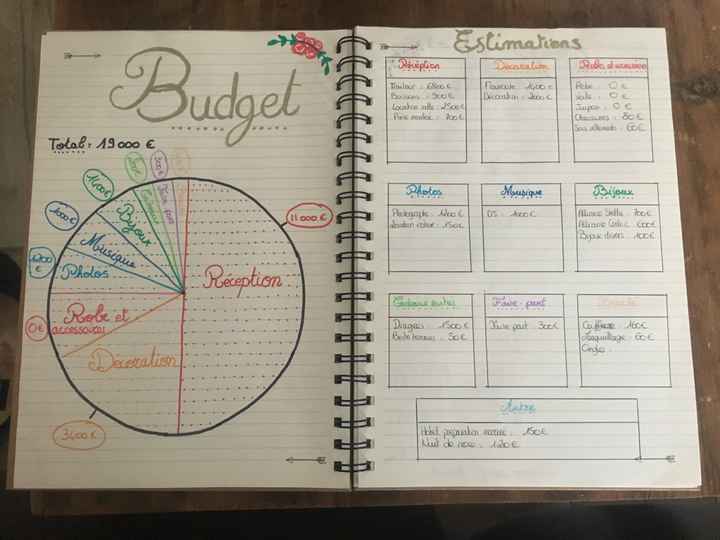 Budget
Total : 19 000 €
11 000 €
Réception
1400 €
Bijoux
1000 €
Musique
1200
€
Photos
0 €
Robe et
accessoires
Décoration
3600 €
300€
Faire part
Estimations
Réception
Traiteur :
Boissons : 900 €
Location salle : 2500 €
Décoration
Fleuriste : 1600 €
Décoration : 2000 €
Robe et accessoires
Robe : 0 €
Voile : 0 €
Jupon : 0 €
Chaussures : 80 €
60 €
Photos
Photographe : 1200 €
Location : 150€
Musique
DJ : 1000 €
Bijoux
Alliance Stella : 700€
Alliance : 600€
Bijoux divers : 100€
Cadeaux invités
Dragées : 1500 €
50 €
Faire-part
Faire part : 300€
Beauté
Coiffeuse : 160€
Maquillage : 60 €
Ongles :
Autre
Hôtel préparation mariée : 150€
Nuit de noce : 120€